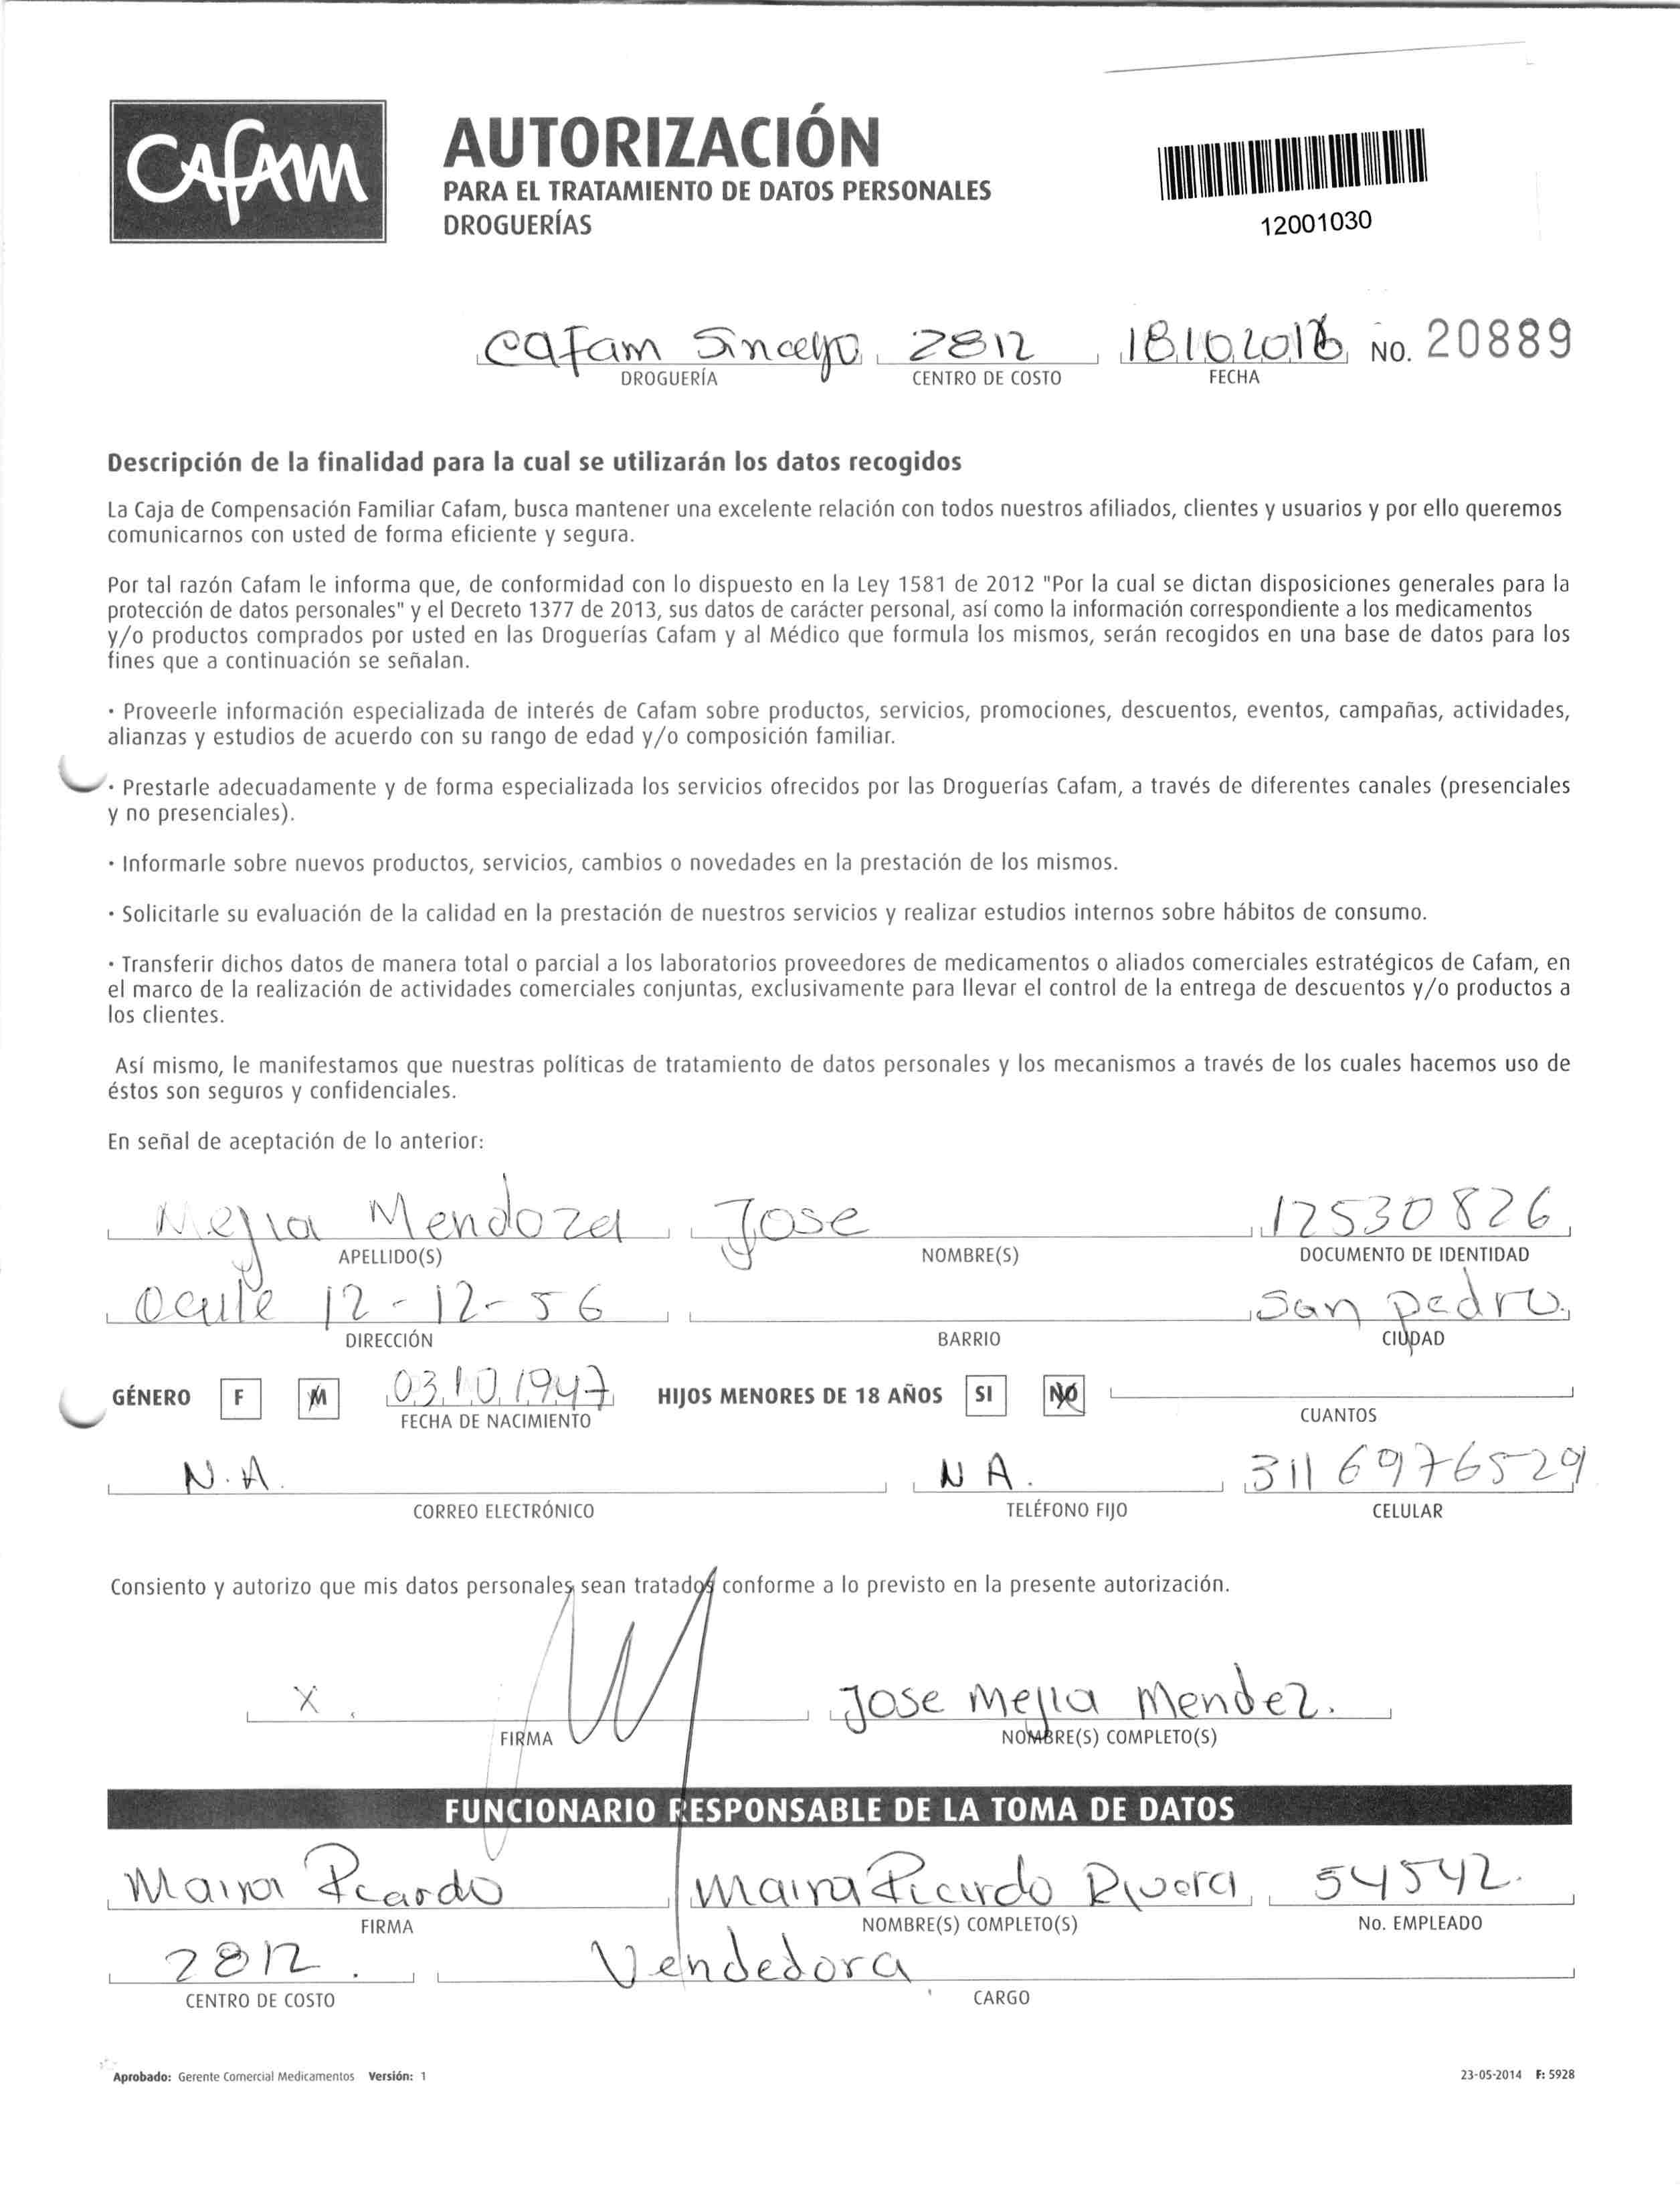 CAFAM
AUTORIZACIÓN
PARA EL TRATAMIENTO DE DATOS PERSONALES
DROGUERÍAS
12001030
Cafam Sincelejo 2812 18102016 NO. 20889
DROGUERÍA CENTRO DE COSTO FECHA
Descripción de la finalidad para la cual se utilizarán los datos recogidos
La Caja de Compensación Familiar Cafam, busca mantener una excelente relación con todos nuestros afiliados, clientes y usuarios y por ello queremos
comunicarnos con usted de forma eficiente y segura.
Por tal razón Cafam le informa que, de conformidad con lo dispuesto en la Ley 1581 de 2012 "Por la cual se dictan disposiciones generales para la
protección de datos personales" y el Decreto 1377 de 2013, sus datos de carácter personal, así como la información correspondiente a los medicamentos
y/o productos comprados por usted en las Droguerías Cafam y al Médico que formula los mismos, serán recogidos en una base de datos para los
fines que a continuación se señalan.
· Proveerle información especializada de interés de Cafam sobre productos, servicios, promociones, descuentos, eventos, campañas, actividades,
alianzas y estudios de acuerdo con su rango de edad y/o composición familiar.
· Prestarle adecuadamente y de forma especializada los servicios ofrecidos por las Droguerías Cafam, a través de diferentes canales (presenciales
y no presenciales).
· Informarle sobre nuevos productos, servicios, cambios o novedades en la prestación de los mismos.
· Solicitarle su evaluación de la calidad en la prestación de nuestros servicios y realizar estudios internos sobre hábitos de consumo.
· Transferir dichos datos de manera total o parcial a los laboratorios proveedores de medicamentos o aliados comerciales estratégicos de Cafam, en
el marco de la realización de actividades comerciales conjuntas, exclusivamente para llevar el control de la entrega de descuentos y/o productos a
los clientes.
Así mismo, le manifestamos que nuestras políticas de tratamiento de datos personales y los mecanismos a través de los cuales hacemos uso de
éstos son seguros y confidenciales.
En señal de aceptación de lo anterior:
Mejia Mendoza Jose 12530826
APELLIDO(S) NOMBRE(S) DOCUMENTO DE IDENTIDAD
12-12-56 San pedro
DIRECCIÓN BARRIO CIUDAD
GÉNERO F M 03101947 HIJOS MENORES DE 18 AÑOS SI NO
FECHA DE NACIMIENTO CUANTOS
N.A. NA. 3116976529
CORREO ELECTRÓNICO TELÉFONO FIJO CELULAR
Consiento y autorizo que mis datos personales sean tratados conforme a lo previsto en la presente autorización.
X. Jose Mejia Mendez.
FIRMA NOMBRE(S) COMPLETO(S)
FUNCIONARIO RESPONSABLE DE LA TOMA DE DATOS
Maira Ricardo Maira Ricardo Rivera 54542.
FIRMA NOMBRE(S) COMPLETO(S) No. EMPLEADO
2812. Vendedora
CENTRO DE COSTO CARGO
Aprobado: Gerente Comercial Medicamentos Versión: 1 23-05-2014 F: 5928